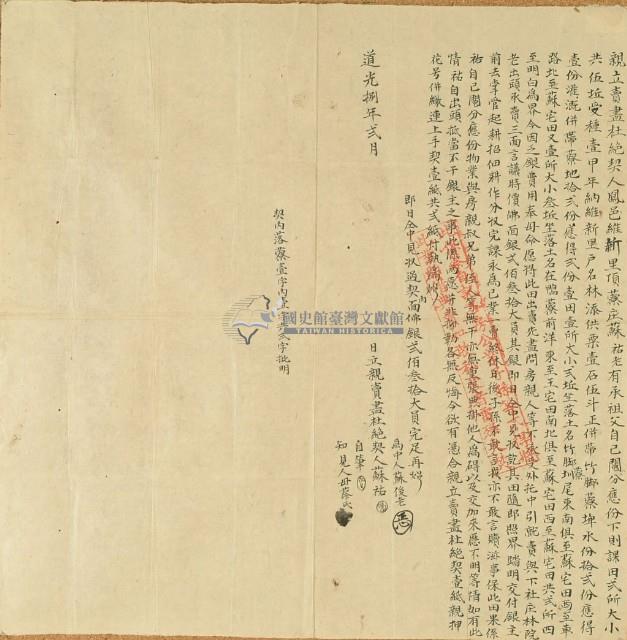 親立賣盡杜絕契人鳳邑維新里頂蔡庄蘇祐老有承祖父自己鬮分應份下則課田弍所大小
共伍坵受種壹甲年納維新里戶名林添供粟壹石伍斗正併帶竹腳蔡埤水份拾弍份應得
壹份灌溉併帶蔡地拾弍份應得弍份壹田壹所大小弍坵坐落土名竹腳圳尾東南俱至蘇宅田西至車
路北至蘇宅田又壹所大小叁坵坐落土名在鴨蔡前洋東至王宅田南北俱至蘇宅田西至蘇宅田共弍所四
至明白為界今因乏銀費用奉母命愿將此田出賣先盡問房親人等不承受外托中引就賣與下社庄林院
老出頭承買三面言議時價佛面銀弍佰叁拾大員其銀即日仝中見收訖其田隨即照界踏明交付銀主
前去掌管起耕招佃耕作分收完課永為己業一賣終休日後子孫不敢言找亦不敢言贖滋事保此田果係
祐自己鬮分應份物業與房親叔兄弟侄人等無干亦無重張典掛他人為碍以及交加來歷不明等情如有此
情祐自出頭抵當不干銀主之事此係兩愿各無反悔今欲有憑合親立賣盡杜絕契壹紙親押
花号併繳連上手契壹紙共弍紙付執炤
即日仝中見收過契面佛銀弍佰叁拾大員完足再炤
為中人蘇俊老
日立親賣盡杜絕契人蘇祐
自筆
知見人母蔡氏
道光捌年弍月
契內落蔡壹字內壹字共弍字批明
國史館臺灣文獻館
TAIWAN HISTORICA